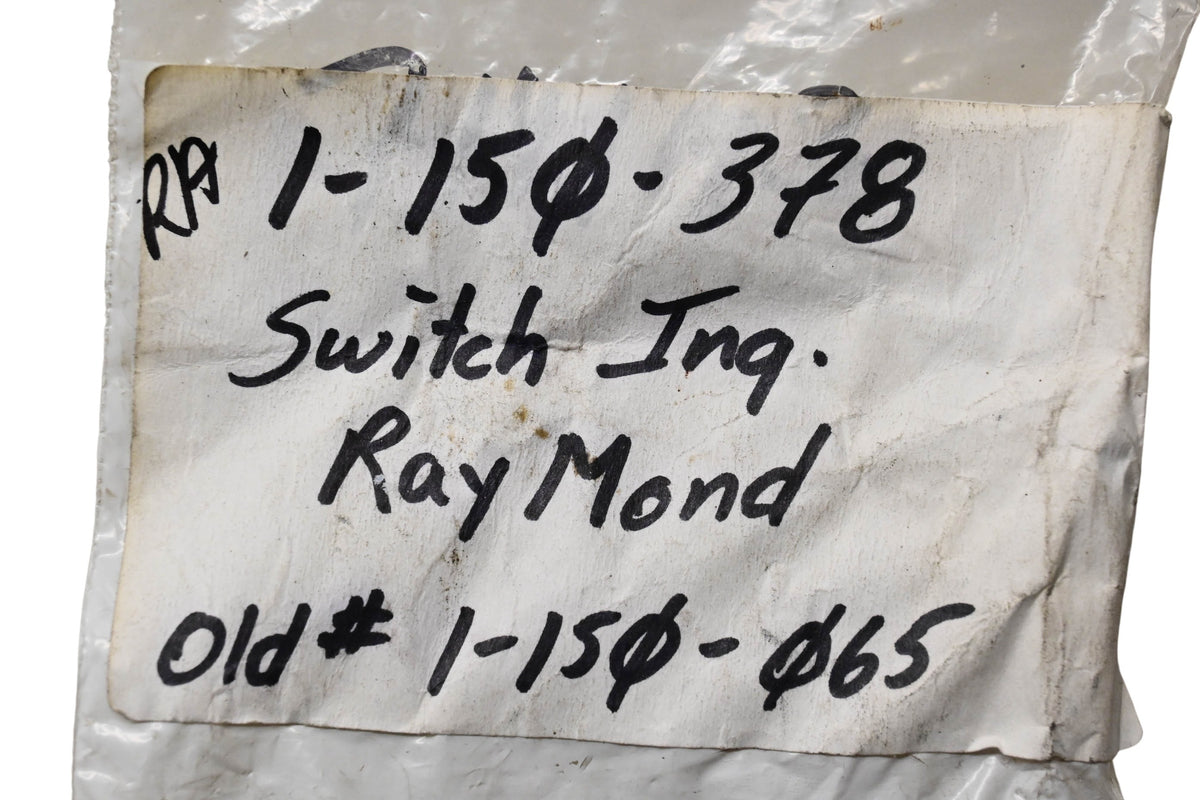 RA 1-15Ø-378
Switch Inq.
RayMond
Old # 1-15Ø-Ø65